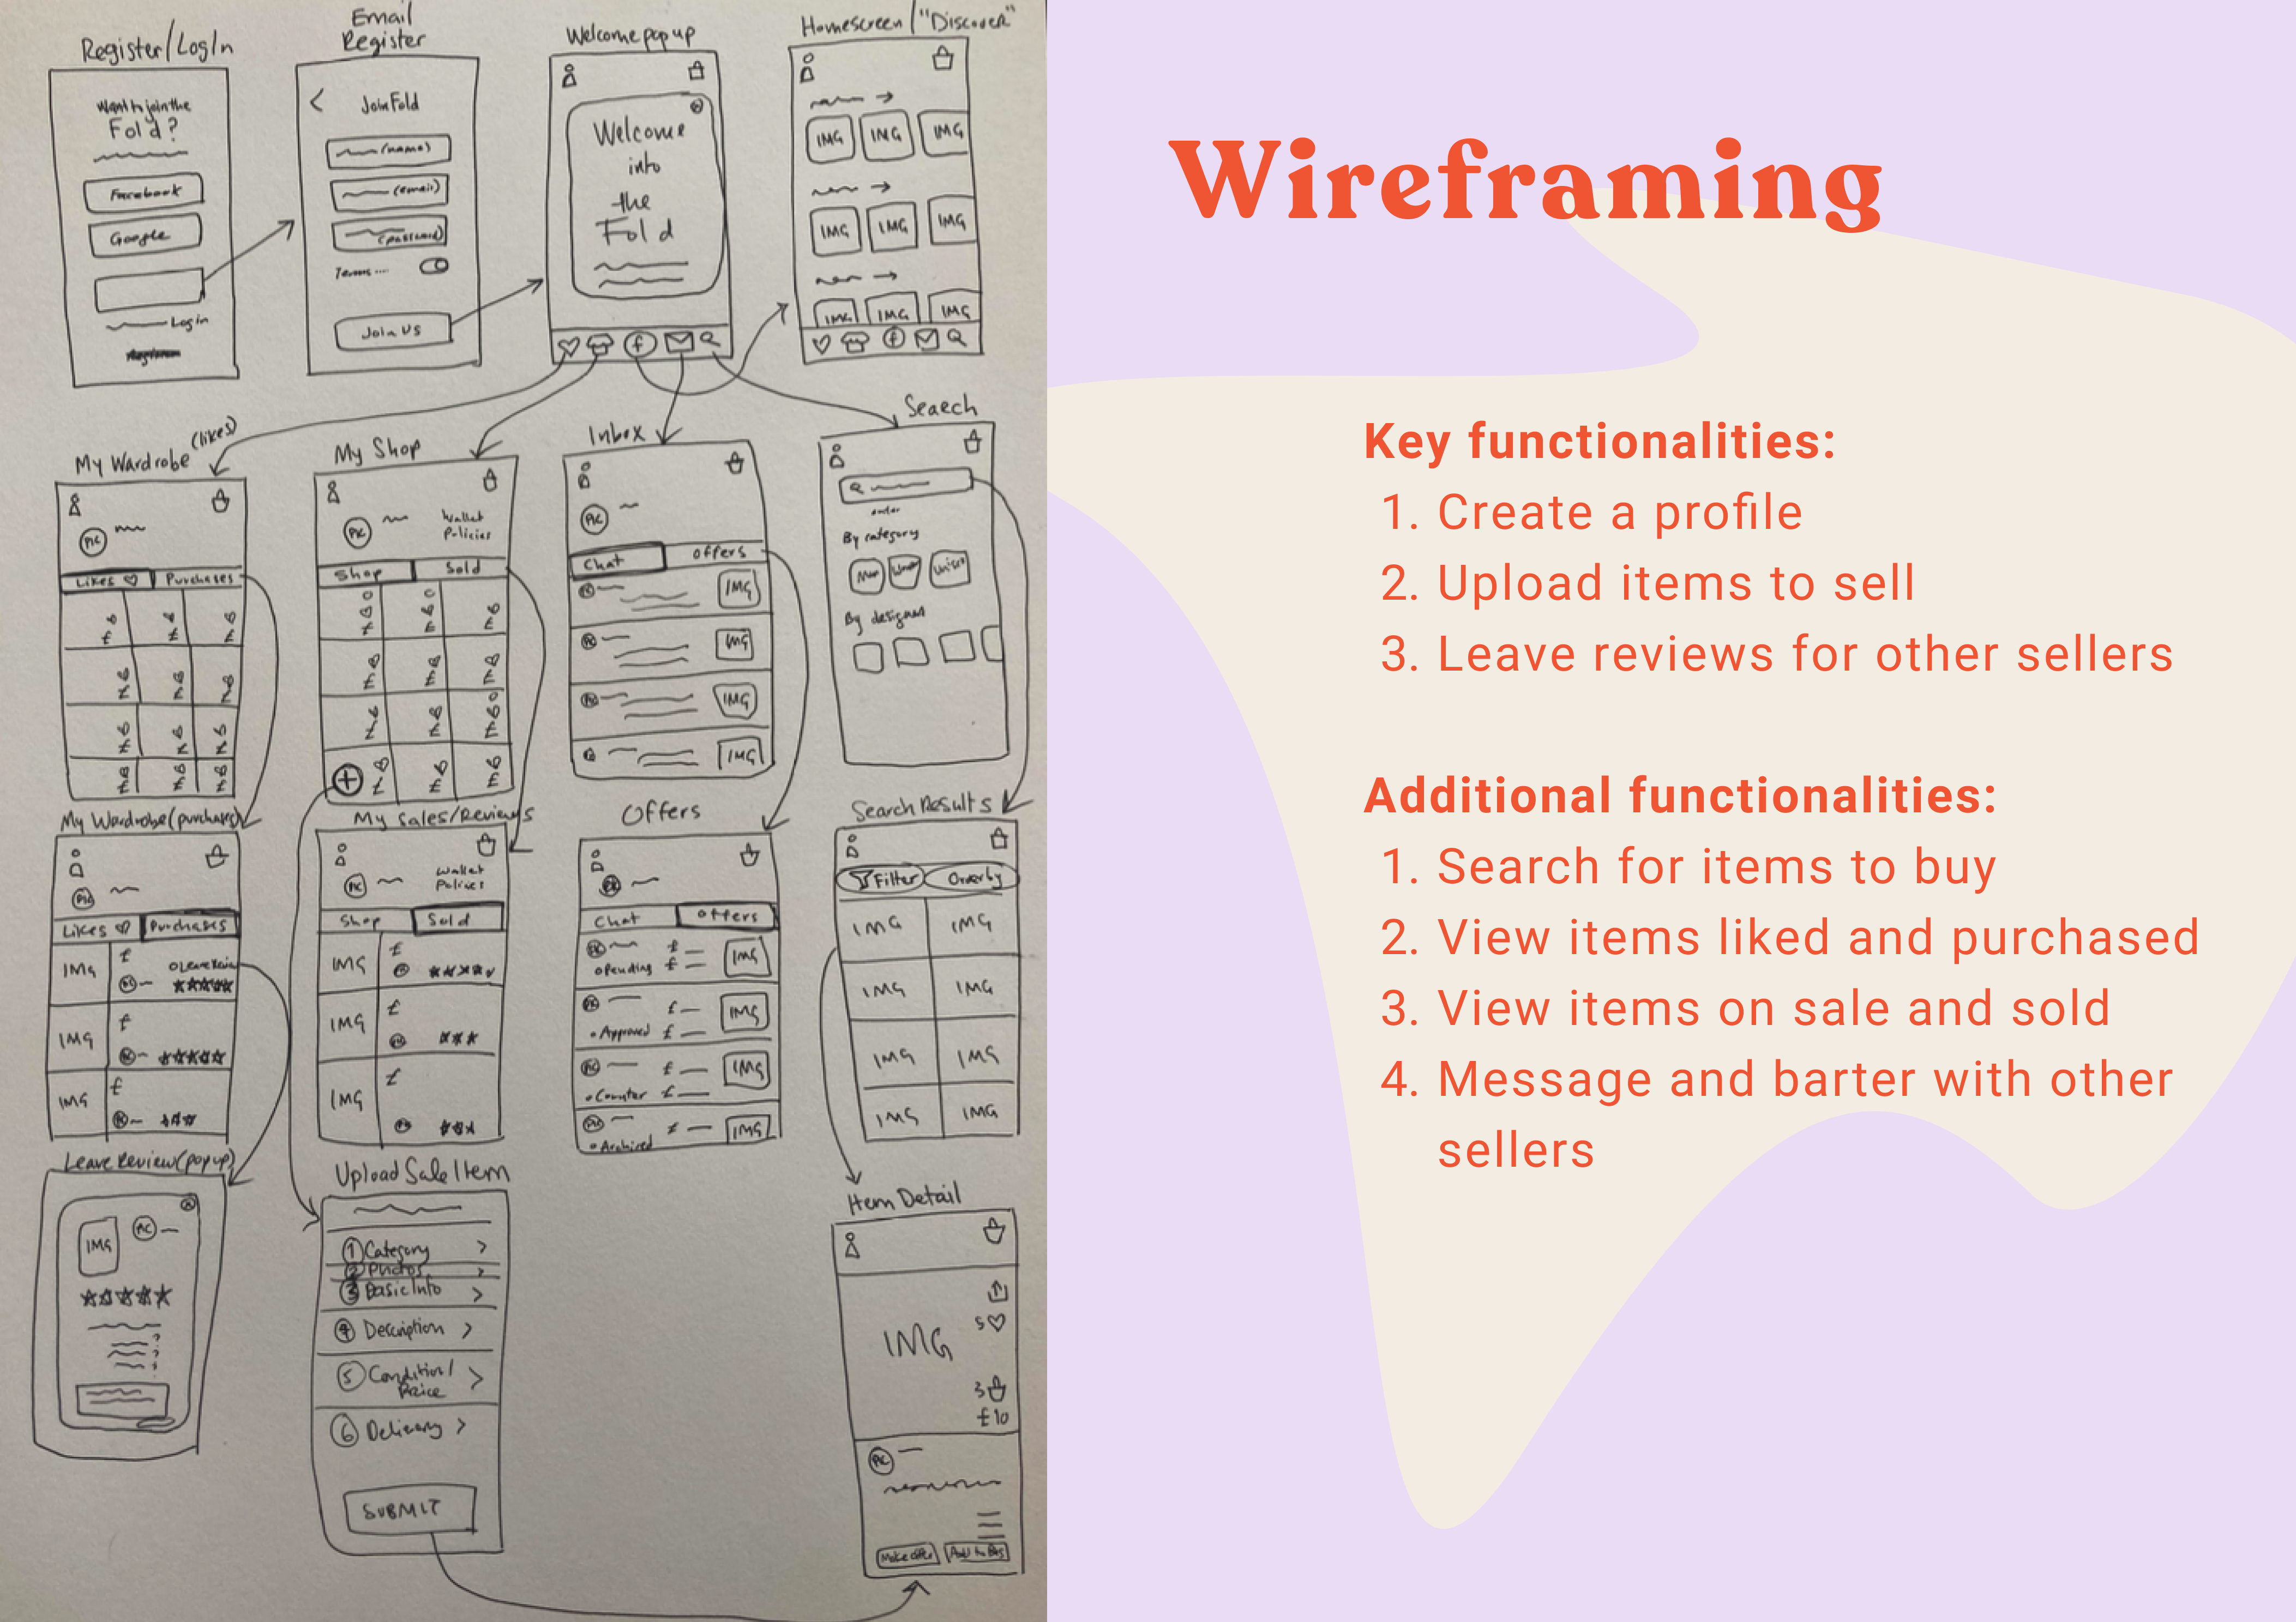 Register/LogIn
Want to join the
Fold?
Facebook
Google
Login
Email
Register
<
Join Fold
(name)
(email)
(password)
Terms....
Join Us
Welcome pop up
Welcome
into
the
Fold
f
Homescreen/"Discover"
IMG IMG IMG
IMG IMG IMG
IMG IMG IMG
f
My Wardrobe (likes)
PIC
Likes Purchases
£ £ £
£ £ £
£ £ £
£ £ £
My Shop
PIC
Wallet
Policies
Shop Sold
£ £ £
£ £ £
£ £ £
+ £ £ £
Inbox
PIC
Chat Offers
IMG
IMG
IMG
IMG
Search
By category
Men Women Unisex
By designer
My Wardrobe (purchases)
PIC
Likes Purchases
IMG £
Leave Review
IMG £
IMG £
My Sales/Reviews
PIC
Wallet
Policies
Shop Sold
IMG £
IMG £
IMG £
Offers
Chat Offers
Pending £ £ IMG
Approved £ £ IMG
Counter £ £ IMG
Archived £ IMG
Search Results
Filter Order by
IMG IMG
IMG IMG
IMG IMG
IMG IMG
Leave Review (pop up)
IMG PIC
Upload Sale Item
1 Category >
2 Photos >
3 Basic Info >
4 Description >
5 Condition/
Price >
6 Delivery >
SUBMIT
Item Detail
5
IMG
3
£10
PIC
Make offer Add to Bag
Wireframing
Key functionalities:
1. Create a profile
2. Upload items to sell
3. Leave reviews for other sellers
Additional functionalities:
1. Search for items to buy
2. View items liked and purchased
3. View items on sale and sold
4. Message and barter with other
sellers